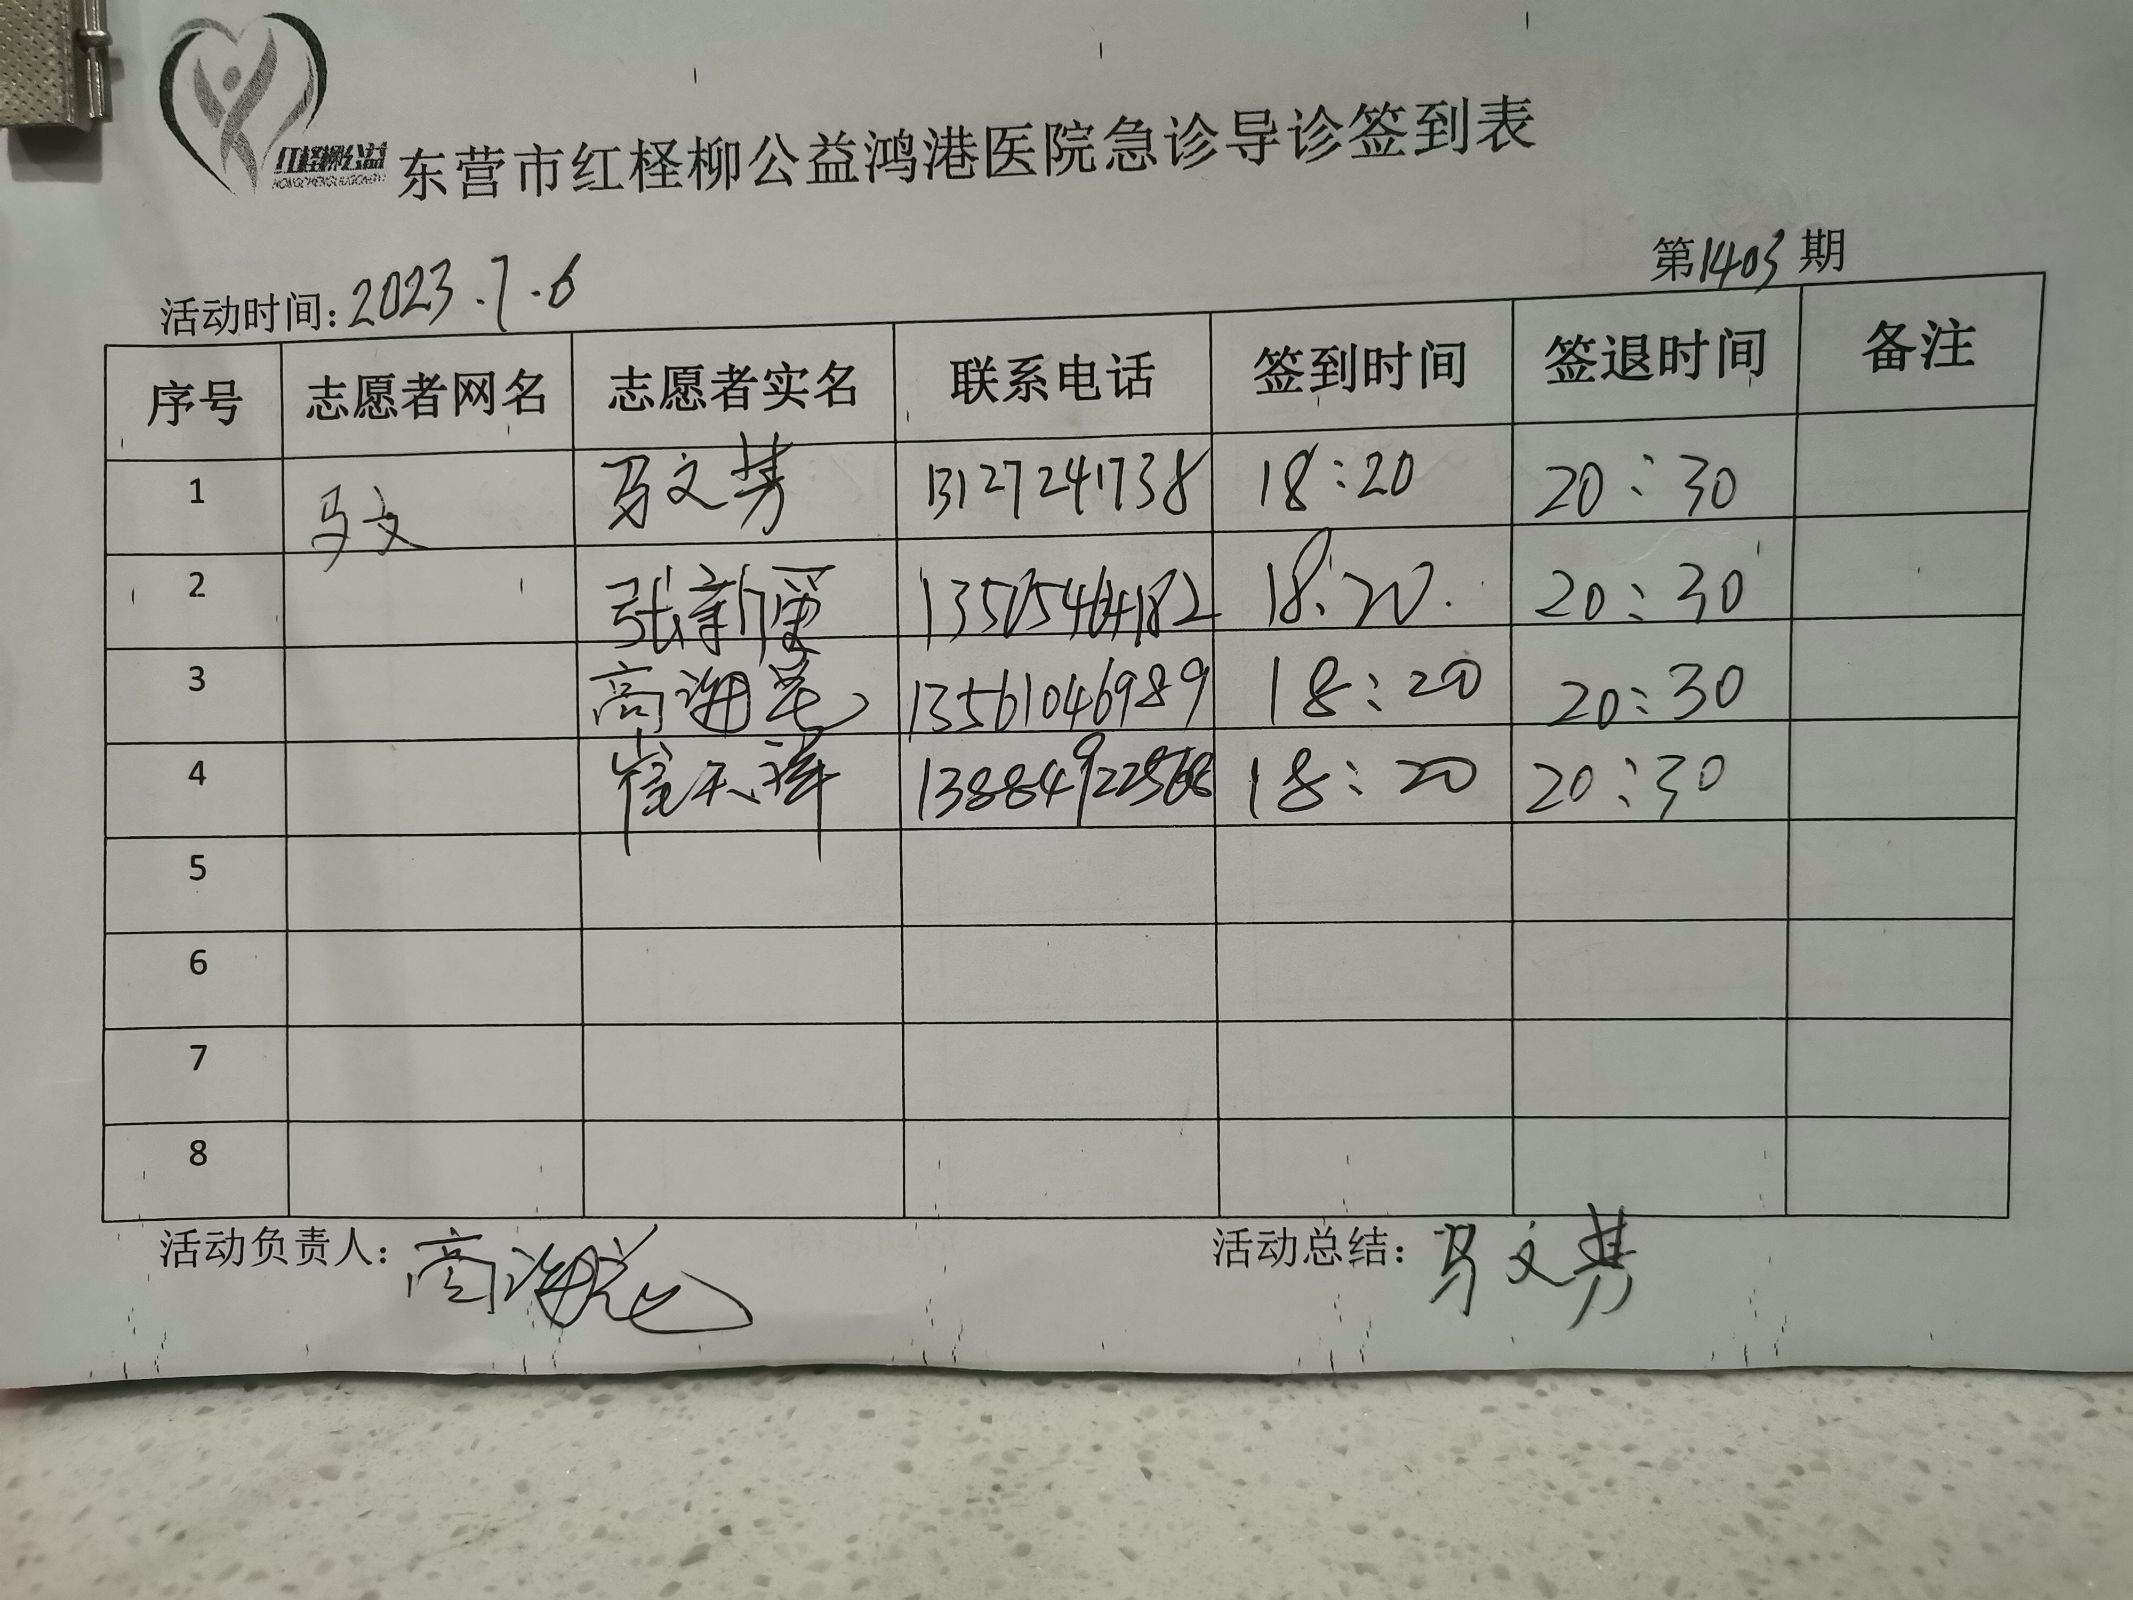 红柽柳公益
东营市红柽柳公益鸿港医院急诊导诊签到表
第1403期
活动时间:2023.7.6
序号 志愿者网名 志愿者实名 联系电话 签到时间 签退时间 备注
1 马文 马文芳 13127241738 18:20 20:30
2 张新 13505464182 18:20. 20:30
3 高海 13561046989 18:20 20:30
4 崔天祥 13884922568 18:20 20:30
5
6
7
8
活动负责人: 高海 活动总结: 马文芳